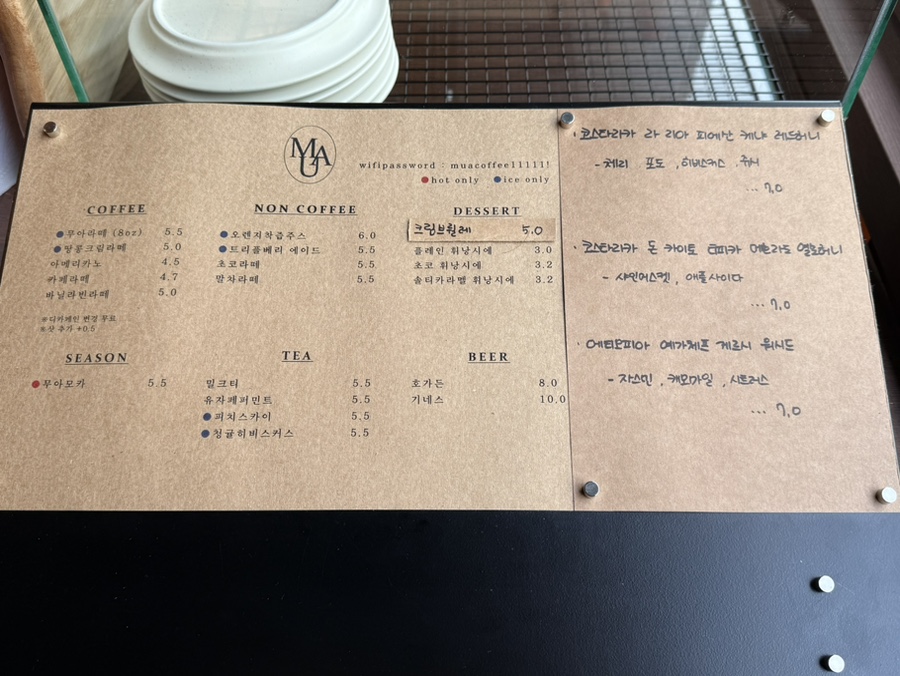 MUA
wifipassword : muacoffee11111!
hot only ice only
COFFEE
무아라떼 (8oz) 5.5
땅콩크림라떼 5.0
아메리카노 4.5
카페라떼 4.7
바닐라빈라떼 5.0
※디카페인 변경 무료
※샷 추가 +0.5
NON COFFEE
오렌지착즙주스 6.0
트리플베리 에이드 5.5
초코라떼 5.5
말차라떼 5.5
DESSERT
크림브륄레 5.0
플레인 휘낭시에 3.0
초코 휘낭시에 3.2
솔티카라멜 휘낭시에 3.2
SEASON
무아모카 5.5
TEA
밀크티 5.5
유자페퍼민트 5.5
피치스카이 5.5
청귤히비스커스 5.5
BEER
호가든 8.0
기네스 10.0
· 코스타리카 라 리아 피에산 케냐 레드허니
- 체리 포도 , 히비스커스 , 쥬시
... 7.0
· 코스타리카 돈 카이토 티피카 메호라도 옐로허니
- 샤인머스켓 , 애플사이다
... 7.0
· 에티오피아 예가체프 게르시 워시드
- 자스민 , 캐모마일 , 시트러스
... 7.0